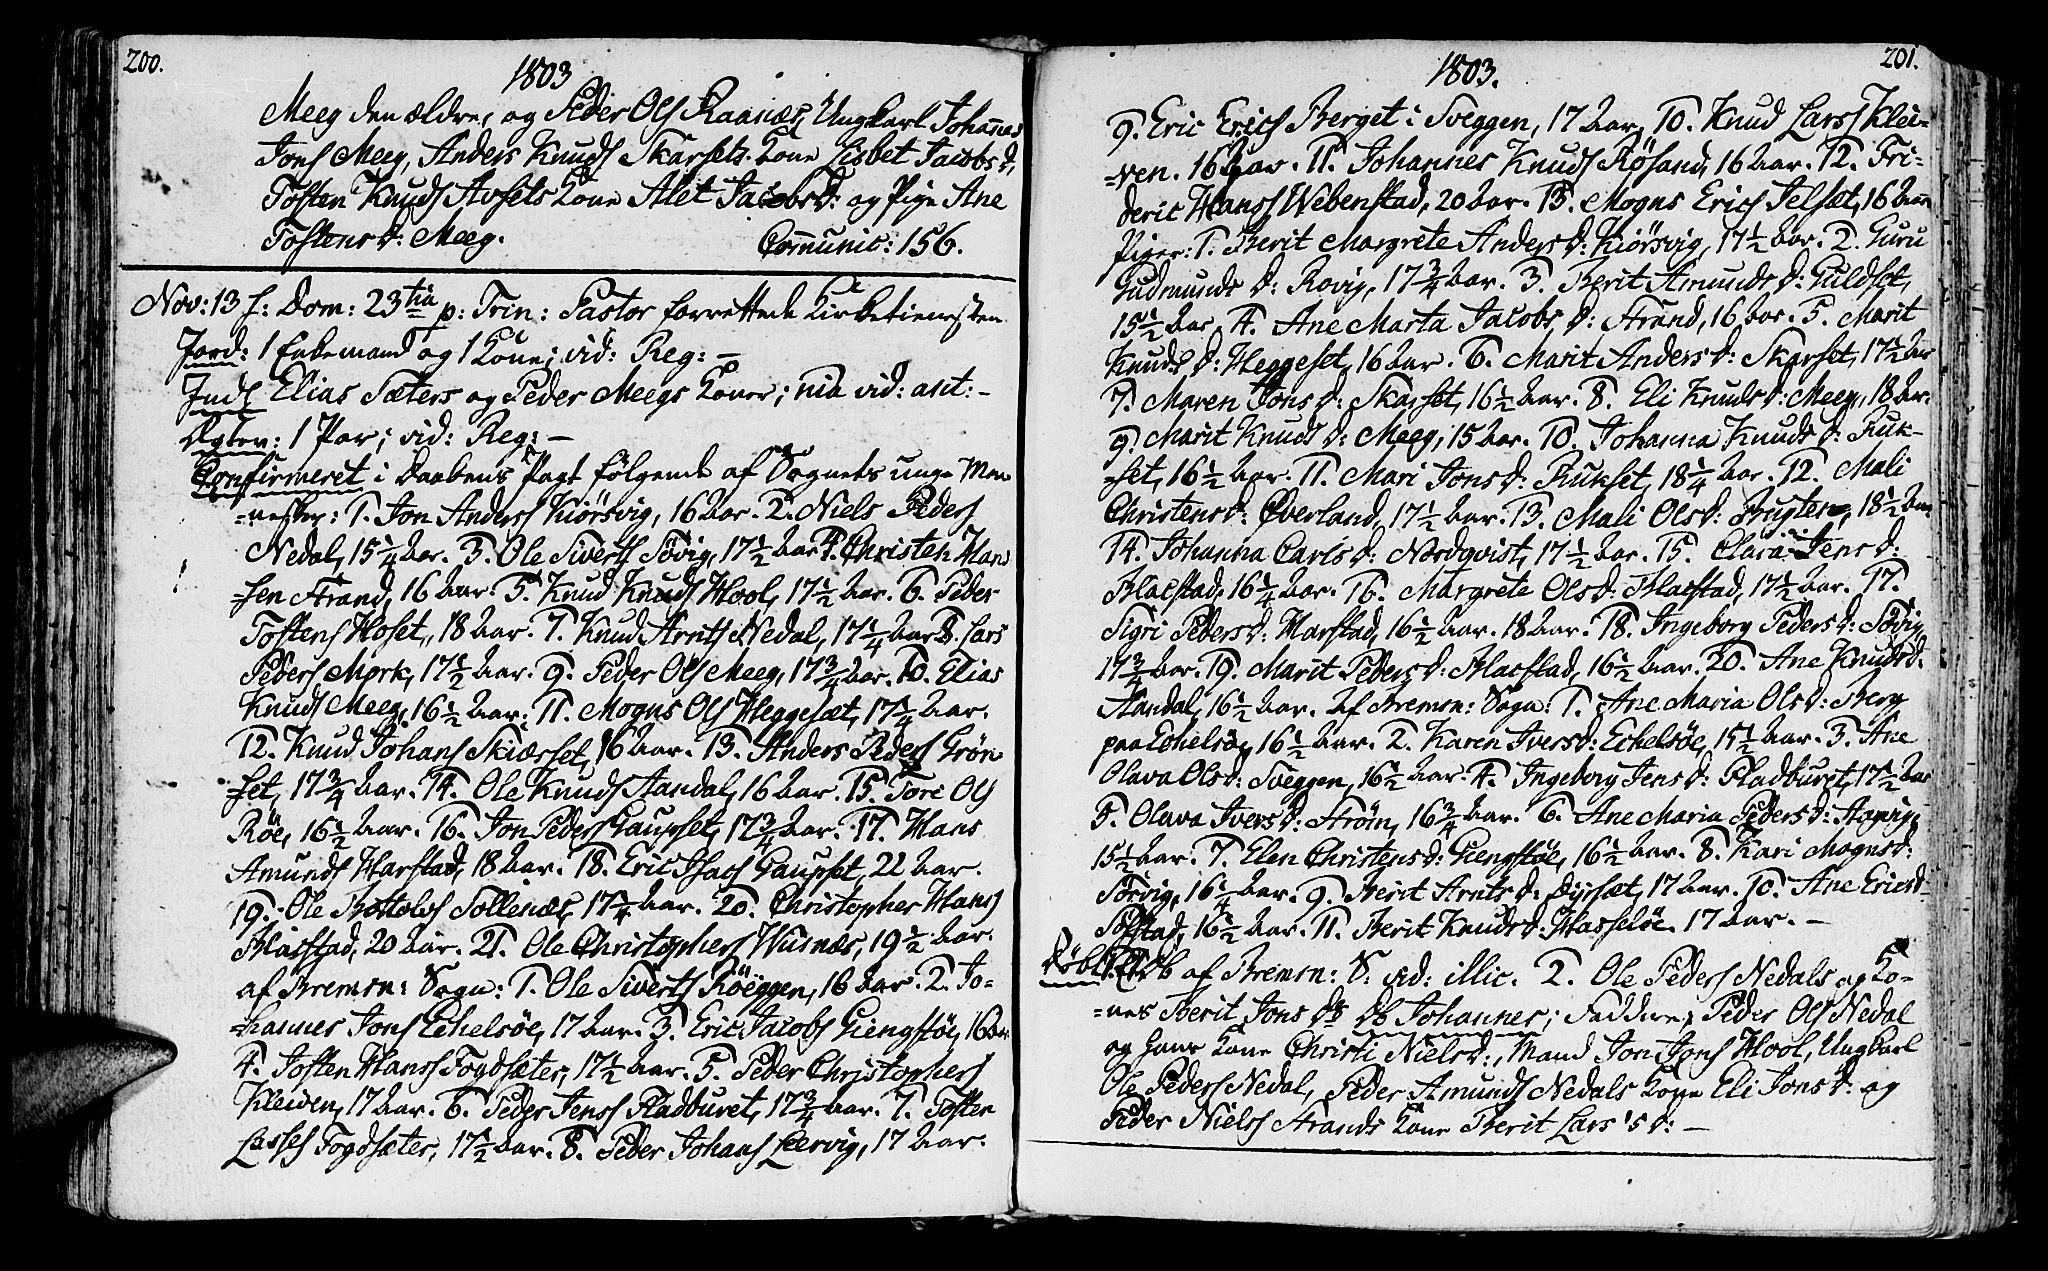 200.
1803
Meeg den ældre, og Peder Ols Raanæs, Ungkarl Johannes
Jons Meeg, Anders Knuds Skarsets Kone Lisbet Jacobs d,
Tosten Knuds Avsets Kone Alet Jacobs d: og Pige Ane
Tostens d: Meeg. Communic: 156.
Nov: 13 f: Dom: 23tia p: Trin: Pastor forrettede Kirketienesten
Jord: 1 Enkemand og 1 Kone; vid: Reg: —
Ind: Elias Sæters og Peder Meegs Koner; vid: ant: —
Ægtev: 1 Par; vid: Reg: —
Confirmeret i Daabens Pagt følgende af Sognets unge Men-
=nesker: 1. Jon Anders Kiörsvig, 16 Aar. 2. Niels Peders
Nedal, 15¼ Aar. 3. Ole Siverts Sövig, 17½ Aar 4. Christen Han
=sen Strand, 16 Aar. 5. Knud Knuds Hool, 17½ Aar. 6. Peder
Tostens Hoset, 18 Aar. 7. Knud Arnts Nedal, 17¼ Aar 8. Lars
Peders Mork, 17½ Aar. 9. Peder Ols Meeg, 17¾ Aar. 10. Elias
Knuds Meeg, 16½ Aar. 11. Mogns Ols Heggeset, 17¼ Aar.
12. Knud Johans Skiærset, 16 Aar. 13. Anders Peders Grön
=set, 17¾ Aar. 14. Ole Knuds Aandal, 16 Aar. 15. Tore Ols
Röe, 16½ Aar. 16. Jon Peders Gaupset, 17¾ Aar. 17. Hans
Amunds Harstad, 18 Aar. 18. Eric Isacs Gaupset, 22 Aar.
19. Ole Bottolvs Sollenæs, 17¼ Aar. 20. Christopher Hans
Blaastad, 20 Aar. 21. Ole Christophers Husnæs, 19½ Aar.
af Bremsn: Sogn: 1. Ole Siverts Röeggen, 16 Aar. 2. Jo-
=hannes Jons Eckelsöe, 17 Aar. 3. Eric Jacobs Giengstöe, 16 Aar
4. Tosten Hans Fogdsæter, 17½ Aar. 5. Peder Christophers
Kleiven, 17 Aar. 6. Peder Jens Fladburet, 17¾ Aar. 7. Tosten
Lasses Fogdsæter, 17½ Aar. 8. Peder Johans Leervig, 17 Aar.
201.
1803.
9. Eric Erics Berget i Sveggen, 17 Aar, 10. Knud Lars Klei-
=ven. 16 Aar. 11. Johannes Knuds Rösand, 16 Aar. 12. Fri-
deric Hans Webenstad, 20 Aar. 13. Mogns Erics Telset, 16 Aar
Piger: 1. Berit Margrete Anders d: Kiörsvig, 17½ Aar. 2. Guru
Gudmunds d: Rovig, 17¾ Aar. 3. Berit Amunds d: Guldset,
15½ Aar 4. Ane Marta Jacobs d: Strand, 16 Aar. 5. Marit
Knuds d: Heggeset, 16 Aar. 6. Marit Anders d: Skarset, 17½ Aar
7. Maren Jons d: Skarset, 16½ Aar. 8. Eli Knuds d: Meeg, 18 Aar.
9. Marit Knuds d: Meeg, 15 Aar. 10. Johanna Knuds d: Ruk-
=set, 16½ Aar. 11. Mari Jons d: Rukset, 18¼ Aar. 12. Mali
Christens d: Överland, 17½ Aar. 13. Mali Ols d: Bugten, 18½ Aar
14. Johanna Carls d: Nordqvist, 17½ Aar. 15. Clara Jens d:
Blaestad, 16¼ Aar. 16. Margrete Ols d: Blaestad, 17½ Aar. 17.
Sigri Peders d: Harstad, 16½ Aar. 18 Aar. 18. Ingeborg Peders d: Sövig,
17¾ Aar. 19. Marit Peders d: Blaestad, 16½ Aar. 20. Ane Knuds d.
Aandal, 16½ Aar. Af Bremsn: Sogn: 1. Ane Maria Ols d: Berg
paa Eckelsöe, 16½ Aar. 2. Karen Ivers d: Eckelsöe, 15½ Aar. 3. Ane
Olava Ols d: Sveggen, 16½ Aar. 4. Ingeborg Jens d: Fladburet, 17½ Aar
5. Olava Ivers d: Ström, 16¾ Aar. 6. Ane Maria Peders d:
15½ Aar. 7. Elen Christens d: Giengstöe, 16½ Aar. 8. Kari Mogns d:
Sörvig, 16¼ Aar. 9. Berit Arnts d: Dyrset, 17 Aar. 10. Ane Erics d
Solstad, 16½ Aar. 11. Berit Knuds d: Hasselöe. 17 Aar. —
Döbt: 1. Db af Bremsn: S: vid: illic. 2. Ole Peders Nedals og Ko-
=nes Berit Jons Ds Db Johannes; Faddere, Peder Ols Nedal
og hans Kone Christi Niels d:, Mand Jon Jons Hool, Ungkarl
Ole Peders Nedal, Peder Amunds Nedals Kone Eli Jons d: og
Peder Niels Strands Kone Berit Lars's d: —